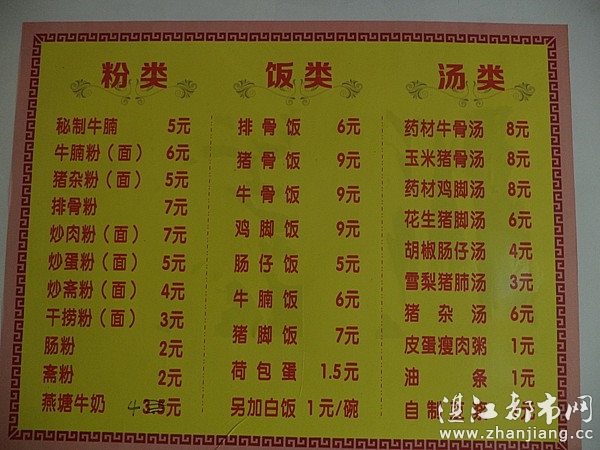 粉类
秘制牛腩 5元
牛腩粉（面） 6元
猪杂粉（面） 5元
排骨粉 7元
炒肉粉（面） 7元
炒蛋粉（面） 5元
炒斋粉（面） 4元
干捞粉（面） 3元
肠粉 2元
斋粉 2元
燕塘牛奶 元
饭类
排骨饭 6元
猪骨饭 9元
牛骨饭 9元
鸡脚饭 9元
肠仔饭 5元
牛腩饭 6元
猪脚饭 7元
荷包蛋 1.5元
另加白饭 1元/碗
汤类
药材牛骨汤 8元
玉米猪骨汤 8元
药材鸡脚汤 8元
花生猪脚汤 6元
胡椒肠仔汤 4元
雪梨猪肺汤 3元
猪杂汤 6元
皮蛋瘦肉粥 1元
油条 1元
自制
湛江都市网
www.zhanjiang.cc